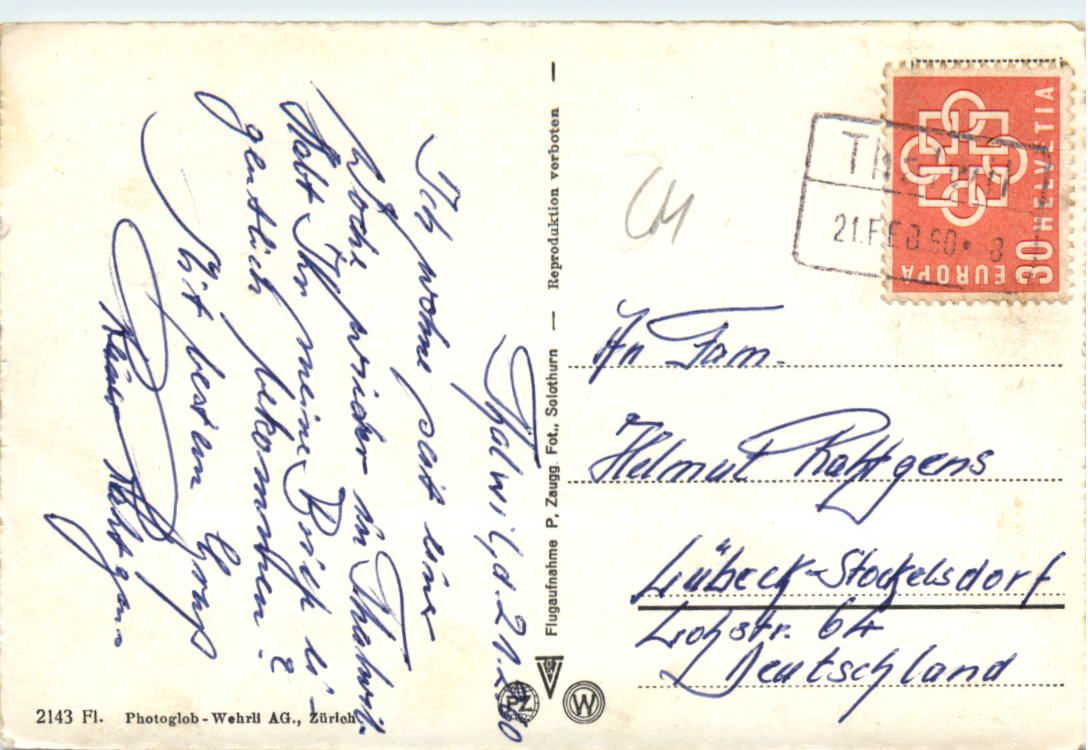 Thalwil, d. 21.2.60
Ich wohne seit einer
Woche wieder in Thalwil.
Habt Ihr meine Briefe ei-
gentlich bekommen?
Mit bestem Gruß
HELVETIA
30
EUROPA
21.FEB 60 • 8
CH
An Fam.
Helmut Rahtgens
Lübeck-Stockelsdorf
Lohstr. 64
Deutschland
Flugaufnahme P. Zaugg. Fot., Solothurn — Reproduktion verboten —
PZ
W
2143 Fl. Photoglob-Wehrli AG., Zürich.